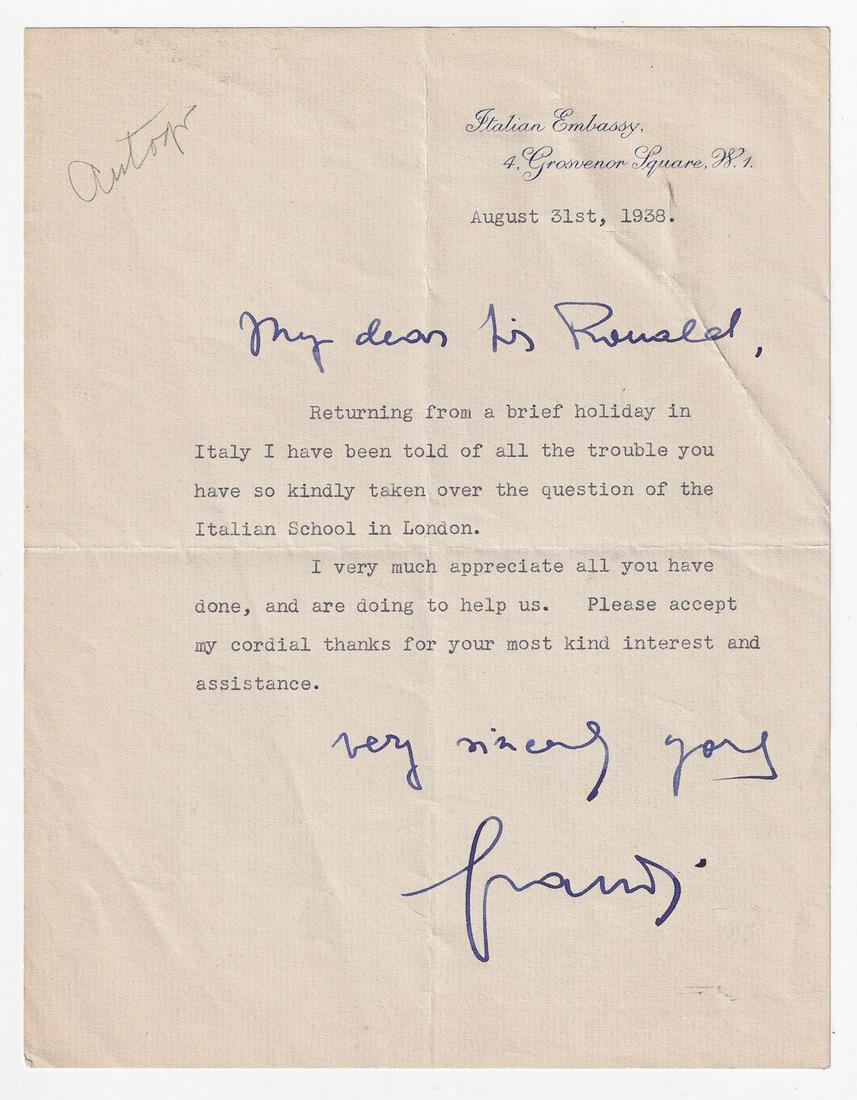 Autogr
Italian Embassy,
4, Grosvenor Square, W. 1.
August 31st, 1938.
My dear Sir Ronald,
Returning from a brief holiday in
Italy I have been told of all the trouble you
have so kindly taken over the question of the
Italian School in London.
I very much appreciate all you have
done, and are doing to help us. Please accept
my cordial thanks for your most kind interest and
assistance.
very sincerely yours
Grandi